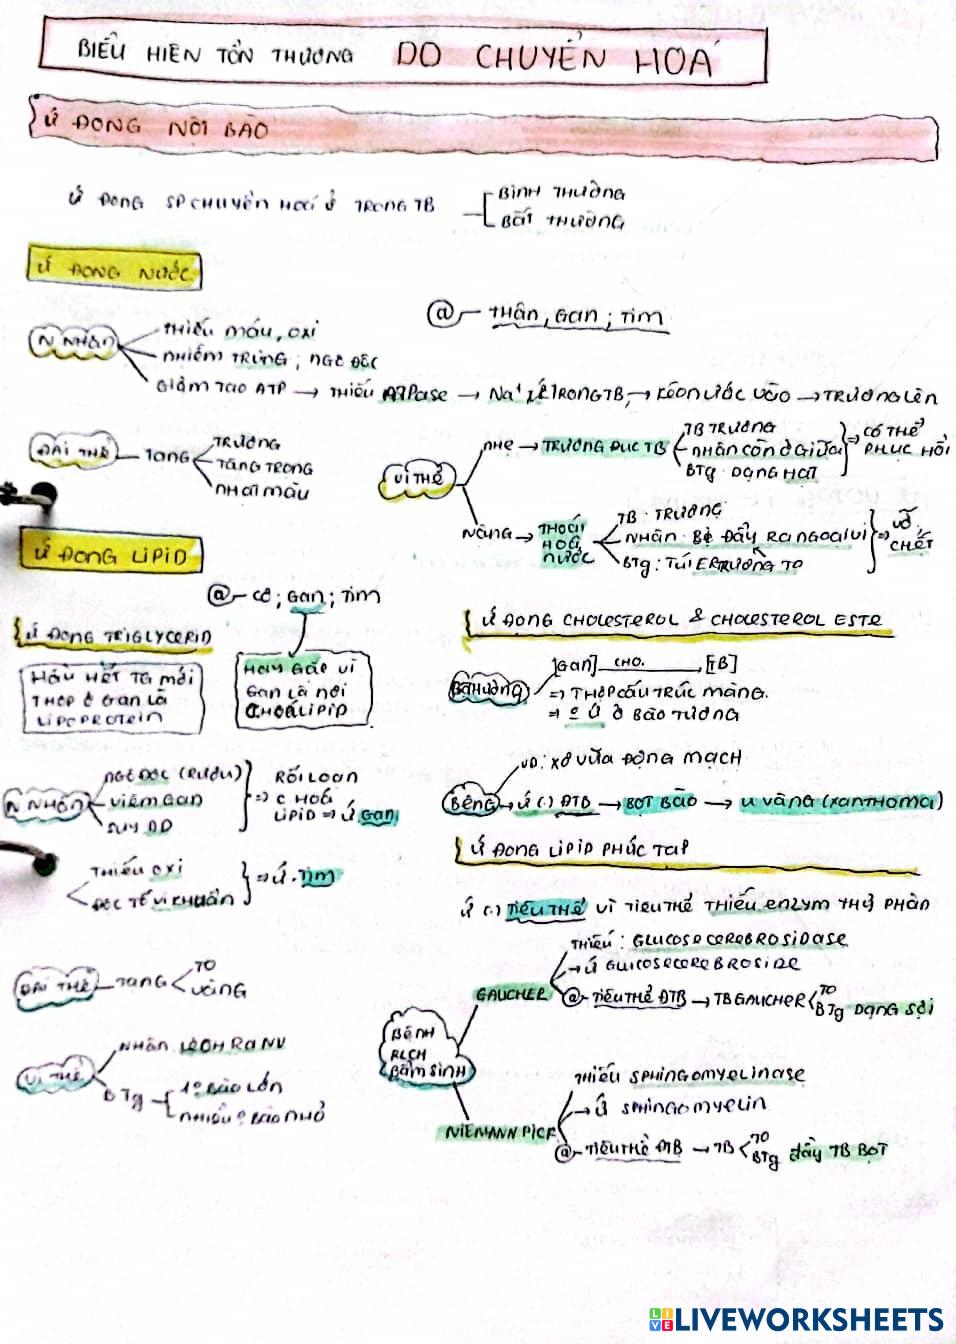 BIỂU HIỆN TỔN THƯƠNG DO CHUYỂN HOÁ
Ứ ĐỌNG NỘI BÀO
Ứ ĐỌNG SP CHUYỂN HOÁ Ở TRONG TB
BÌNH THƯỜNG
BẤT THƯỜNG
Ứ ĐỌNG NƯỚC
@ – THẬN, GAN; TIM
N NHÂN
THIẾU MÁU, OXI
NHIỄM TRÙNG; NGỘ ĐỘC
GIẢM TẠO ATP → THIẾU ATPase → Na⁺ Ứ TRONG TB → KÉO NƯỚC VÀO → TRƯƠNG LÊN
ĐẠI THỂ – TẠNG
TRƯƠNG
TĂNG TRỌNG
NHẠT MÀU
VI THỂ
NHẸ → TRƯƠNG ĐỤC TB
TB TRƯƠNG
NHÂN CÒN Ở GIỮA
BTg DẠNG HẠT
⇒ CÓ THỂ PHỤC HỒI
NẶNG → THOÁI HOÁ NƯỚC
TB: TRƯƠNG
NHÂN BỊ ĐẨY RA NGOẠI VI
BTg: TÚI ER TRƯƠNG TO
⇒ VỠ CHẾT
Ứ ĐỌNG LIPID
@ – CƠ; GAN; TIM
Ứ ĐỌNG TRIGLYCERID
HẦU HẾT TG MỚI
THỢP Ở GAN LÀ
LIPOPROTEIN
HAY GẶP VÌ
GAN LÀ NƠI
CHOÁ LIPIP
N NHÂN
NGỘ ĐỘC (RƯỢU)
VIÊM GAN
SUY DD
⇒ RỐI LOẠN
C HOÁ
LIPID ⇒ Ứ GAN
THIẾU OXI
ĐỘC TỐ VI KHUẨN
⇒ Ứ TIM
ĐẠI THỂ – TẠNG
TO
VÀNG
VI THỂ
NHÂN LỆCH RA NV
BTg
1 º BÀO LỚN
NHIỀU º BÀO NHỎ
Ứ ĐỌNG CHOLESTEROL & CHOLESTEROL ESTE
BÌNH THƯỜNG
[GAN] CHO. [TB]
⇒ THỢP CẤU TRÚC MÀNG.
⇒ º Ứ Ở BÀO TƯƠNG
BỆNG
VD: XƠ VỮA ĐỘNG MẠCH
→ Ứ (.) ĐTB → BỌT BÀO → U VÀNG (XANTHOMA)
Ứ ĐỌNG LIPIP PHỨC TẠP
Ứ (.) TIỂU THỂ VÌ TIỂU THỂ THIẾU ENZYM THUỶ PHÂN
BỆNH
RLCH
BẨM SINH
GAUCHER
THIẾU: GLUCOSECEREBROSIDASE
→ Ứ GLUCOSECEREBROSIDE
@ – TIỂU THỂ ĐTB → TB GAUCHER
TO
BTg DẠNG SỢI
NIEMANN PICK
THIẾU SPHINGOMYELINASE
→ Ứ SPHINGOMYELIN
@ – TIỂU THỂ ĐTB → TB
TO
BTg ĐẦY TB BỌT
LIVE LIVEWORKSHEETS